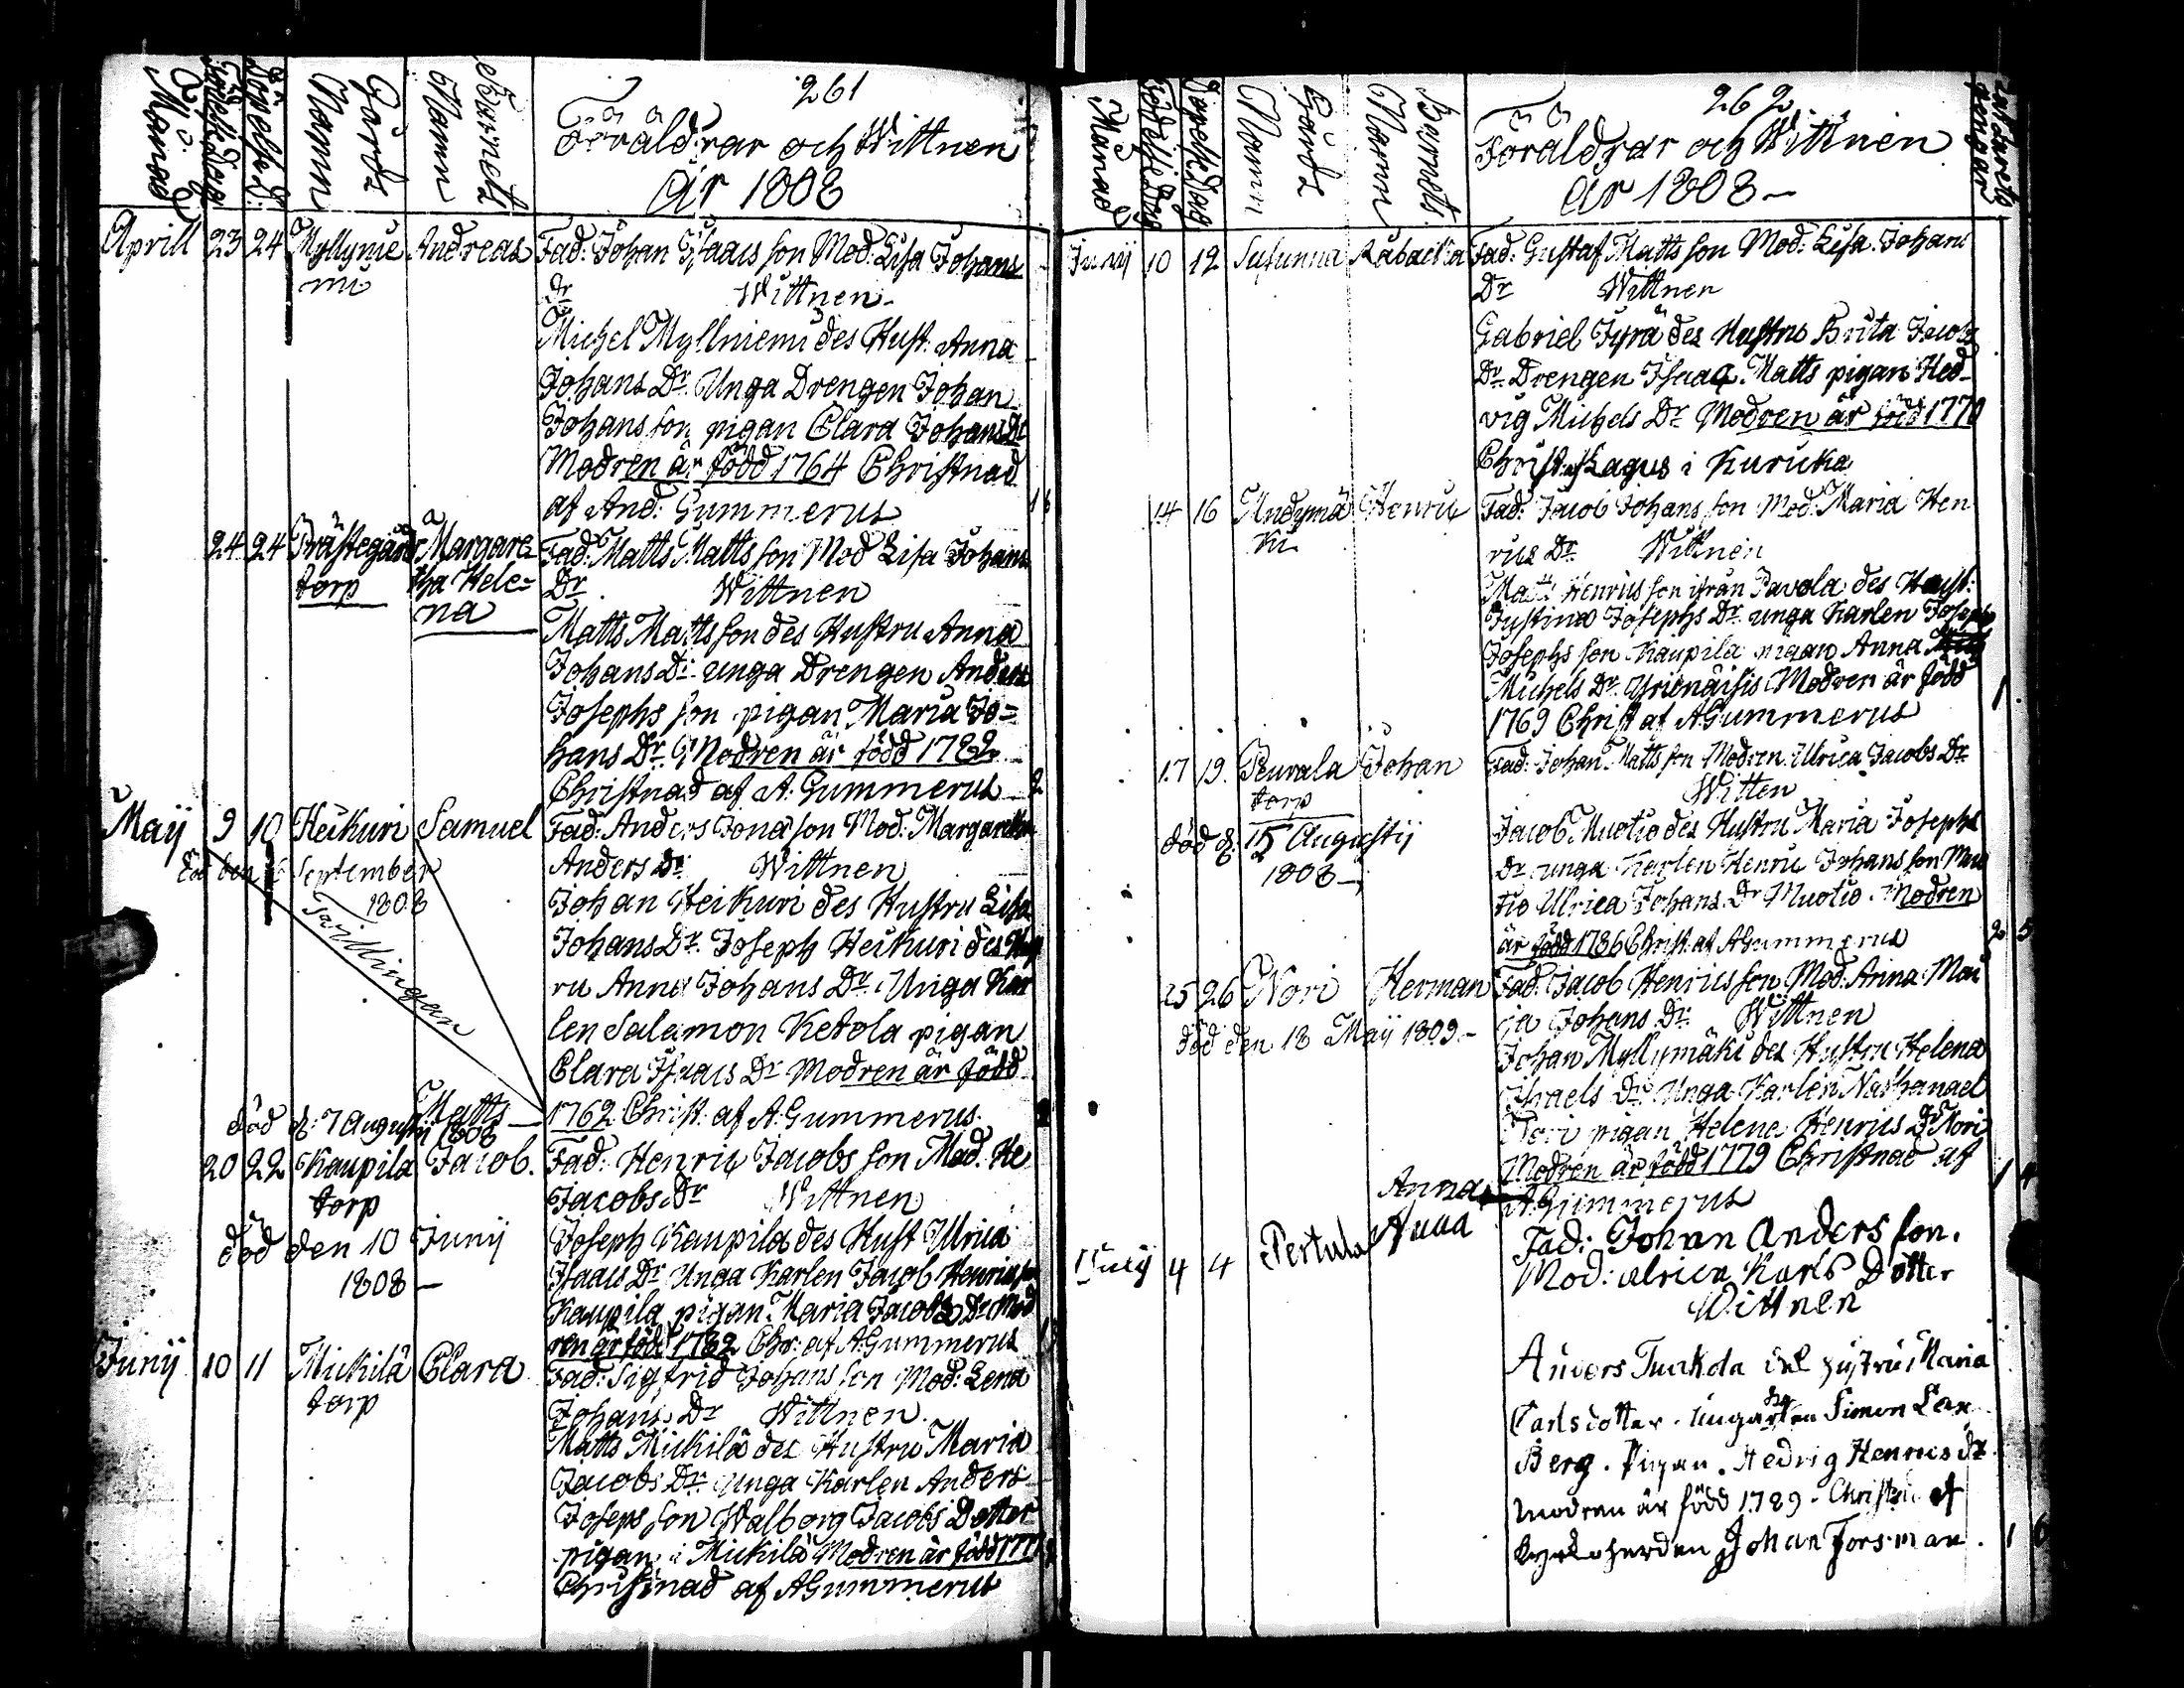 Månad
Födelse Dag
Döpelse D:
Gårds Namn
Barnets Namn
261
Föräldrar och Wittnen
År 1808
Aprill 23 24 Myllynie Andreas Fad: Johan Isaacs son Mod: Lisa Johans
mi Dr Wittnen
Michel Myllniemi des Hust: Anna
Johans Dr Unga Drengen Johan
Johans son pigan Clara Johans Dr
Modren är född 1764 Christnad
af And: Gummerus
24 24 Prästegårds Margare Fad: Matts Matts son Mod Lisa Johans
torp tha Hele- Dr Wittnen
na
Matts Matts son des Hustru Anna
Johans Dr unga Drengen Anders
Josephs son pigan Maria Jo=
hans Dr Modren är född 1782
Christnad af A: Gummerus 2
Maij 9 10 Heikuri Samuel Fad: Anders Jona son Mod: Margaretha
död den September Anders Dr Wittnen
1808 Johan Heikuri des Hustru Lisa
Twillingar Johans Dr Joseph Heikuri des Hust
ru Anna Johans Dr Unga Kar
len Salamon Ketola pigan
Clara Isaacs Dr Modren är född
Matts 1762 Christ: af A: Gummerus
död d: 7 Augustij 1808
20 22 Kaupila Jacob. Fad: Henric Jacobs son Mod. He
torp Jacobs Dr Wittnen
död den 10 Junij Joseph Kaupila des Hust Ulrica
1808 — Isaacs Dr Unga Karlen Jacob Henrics son
Kaupila pigan Maria Jacobs Dr Mod
ren är född 1782 Chr: af A Gummerus
Junij 10 11 Mickilä Clara Fad: Sigfrid Johans son Mod: Lena
torp Johans Dr Wittnen
Matts Mickilä des Hustru Maria
Jacobs Dr Unga Karlen Anders
Joseps son Walborg Jacobs Dotter
pigan i Mickilä Modren är född
Christnad af A Gummerus
Månad
Födelse Dag
Döpelse Dag
Gårds Namn
Barnets Namn
262
Föräldrar och Wittnen
År 1808 —
Junij 10 12 Susanna Rabacka Fad: Gustaf Matts son Mod: Lisa Johans
Dr Wittnen
Gabriel Fyrä des Hustru Brita Jacobs
Dr Drengen Isaac Matts pigan Hed-
vig Michels Dr Modren är född 1770
Christ af Lagus i Kuruka
14 16 Andymä Henric Fad: Jacob Johans son Mod: Maria Hen
ki rics Dr Wittnen
Matts Henrics son ifrån Pavola des Hust:
Justina Josephs Dr unga Karlen Joseph
Josephs son Kaupila pigan Anna
Michels Dr Yrienäisis Modren är född
1769 Christ af A Gummerus 1
17 19 Peurala Johan Fad: Johan Matts son Modren Ulrica Jacobs Dr
torp Witten
död d: 15 Augustij Jacob Muotio des Hustru Maria Josephs
1808 — Dr unga Karlen Henric Johans son Muo
tio Ulrica Johans Dr Muotio Modren
är född 1786 Christ af A Gummerus 2 5
25 26 Nori Herman Fad: Jacob Henrics son Mod: Anna Mari
ja Johans Dr Wittnen
död den 18 Maij 1809 — Johan Myllymäki des Hustru Helena
Israels Dr Unga Karlen Nathanael
Nori pigan Helena Henrics Dr Nori
Modren är född 1779 Christnad af 1 4
Anna A Gummerus
Julij 4 4 Pertula Anna Fad: Johan Anders son.
Mod: Ulrica Karls Dotter
Wittnen
Anders Tuckola des Hustru Maria
Carlsdotter. Unga Karlen Simon Lon
Berg. Pigan. Hedvig Henrics Dr
Modren är född 1789 - Christn: af
Kyrkoherden Johan Forsman. 1 6